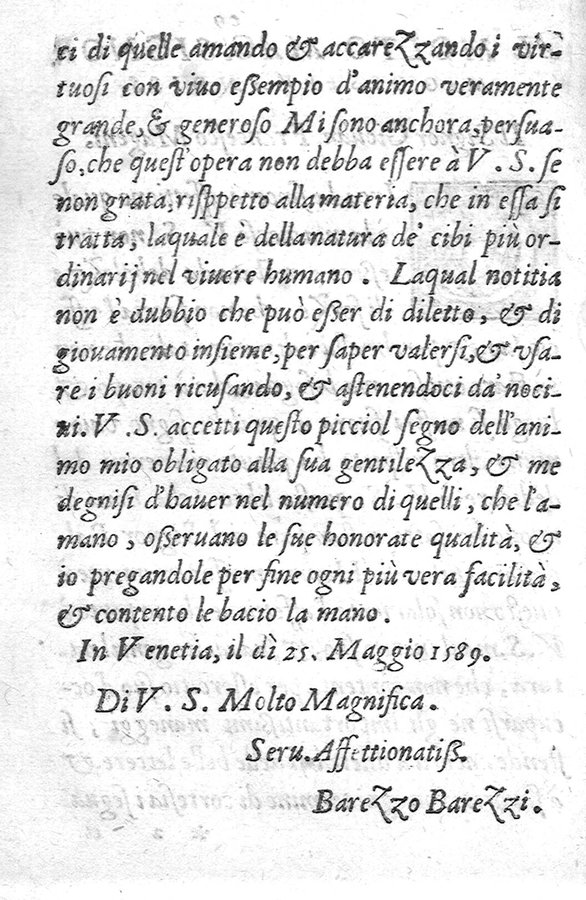 ci di quelle amando & accareZzando i vir-
tuosi con viuo eßempio d'animo veramente
grande, & generoso Mi sono anchora, persua-
so, che quest'opera non debba essere à V. S. se
non grata, risppetto alla materia, che in essa si
tratta, laquale è della natura de' cibi più or-
dinarij nel viuere humano. Laqual notitia
non è dubbio che può eßer di diletto, & di
giouamento insieme, per saper valersi, & vsa-
re i buoni ricusando, & astenendoci da' noci-
ui. V. S. accetti questo picciol segno dell'ani-
mo mio obligato alla sua gentileZza, & me
degnisi d'hauer nel numero di quelli, che l'a-
mano, oßeruano le sue honorate qualità, &
io pregandole per fine ogni più vera facilità,
& contento le bacio la mano.
In Venetia, il dì 25. Maggio 1589.
Di V. S. Molto Magnifica.
Seru. Affettionatiß.
BareZzo BareZzi.